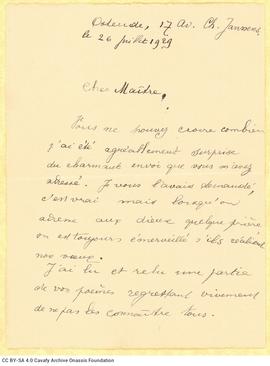 Ostende, 17 Av. Ch. Janssens
le 26 juillet 1929
Cher Maître,
Vous ne pouvez croire combien
j'ai été agréablement surprise
du charmant envoi que vous m'avez
adressé. Je vous l'avais demandé,
c'est vrai mais lorsqu'on
adresse aux dieux quelque prière
on est toujours émerveillé s'ils réalisent
nos vœux.
J'ai lu et relu une partie
de vos poèmes regrettant vivement
de ne pas les connaître tous.
CC BY-SA 4.0 Cavafy Archive Onassis Foundation